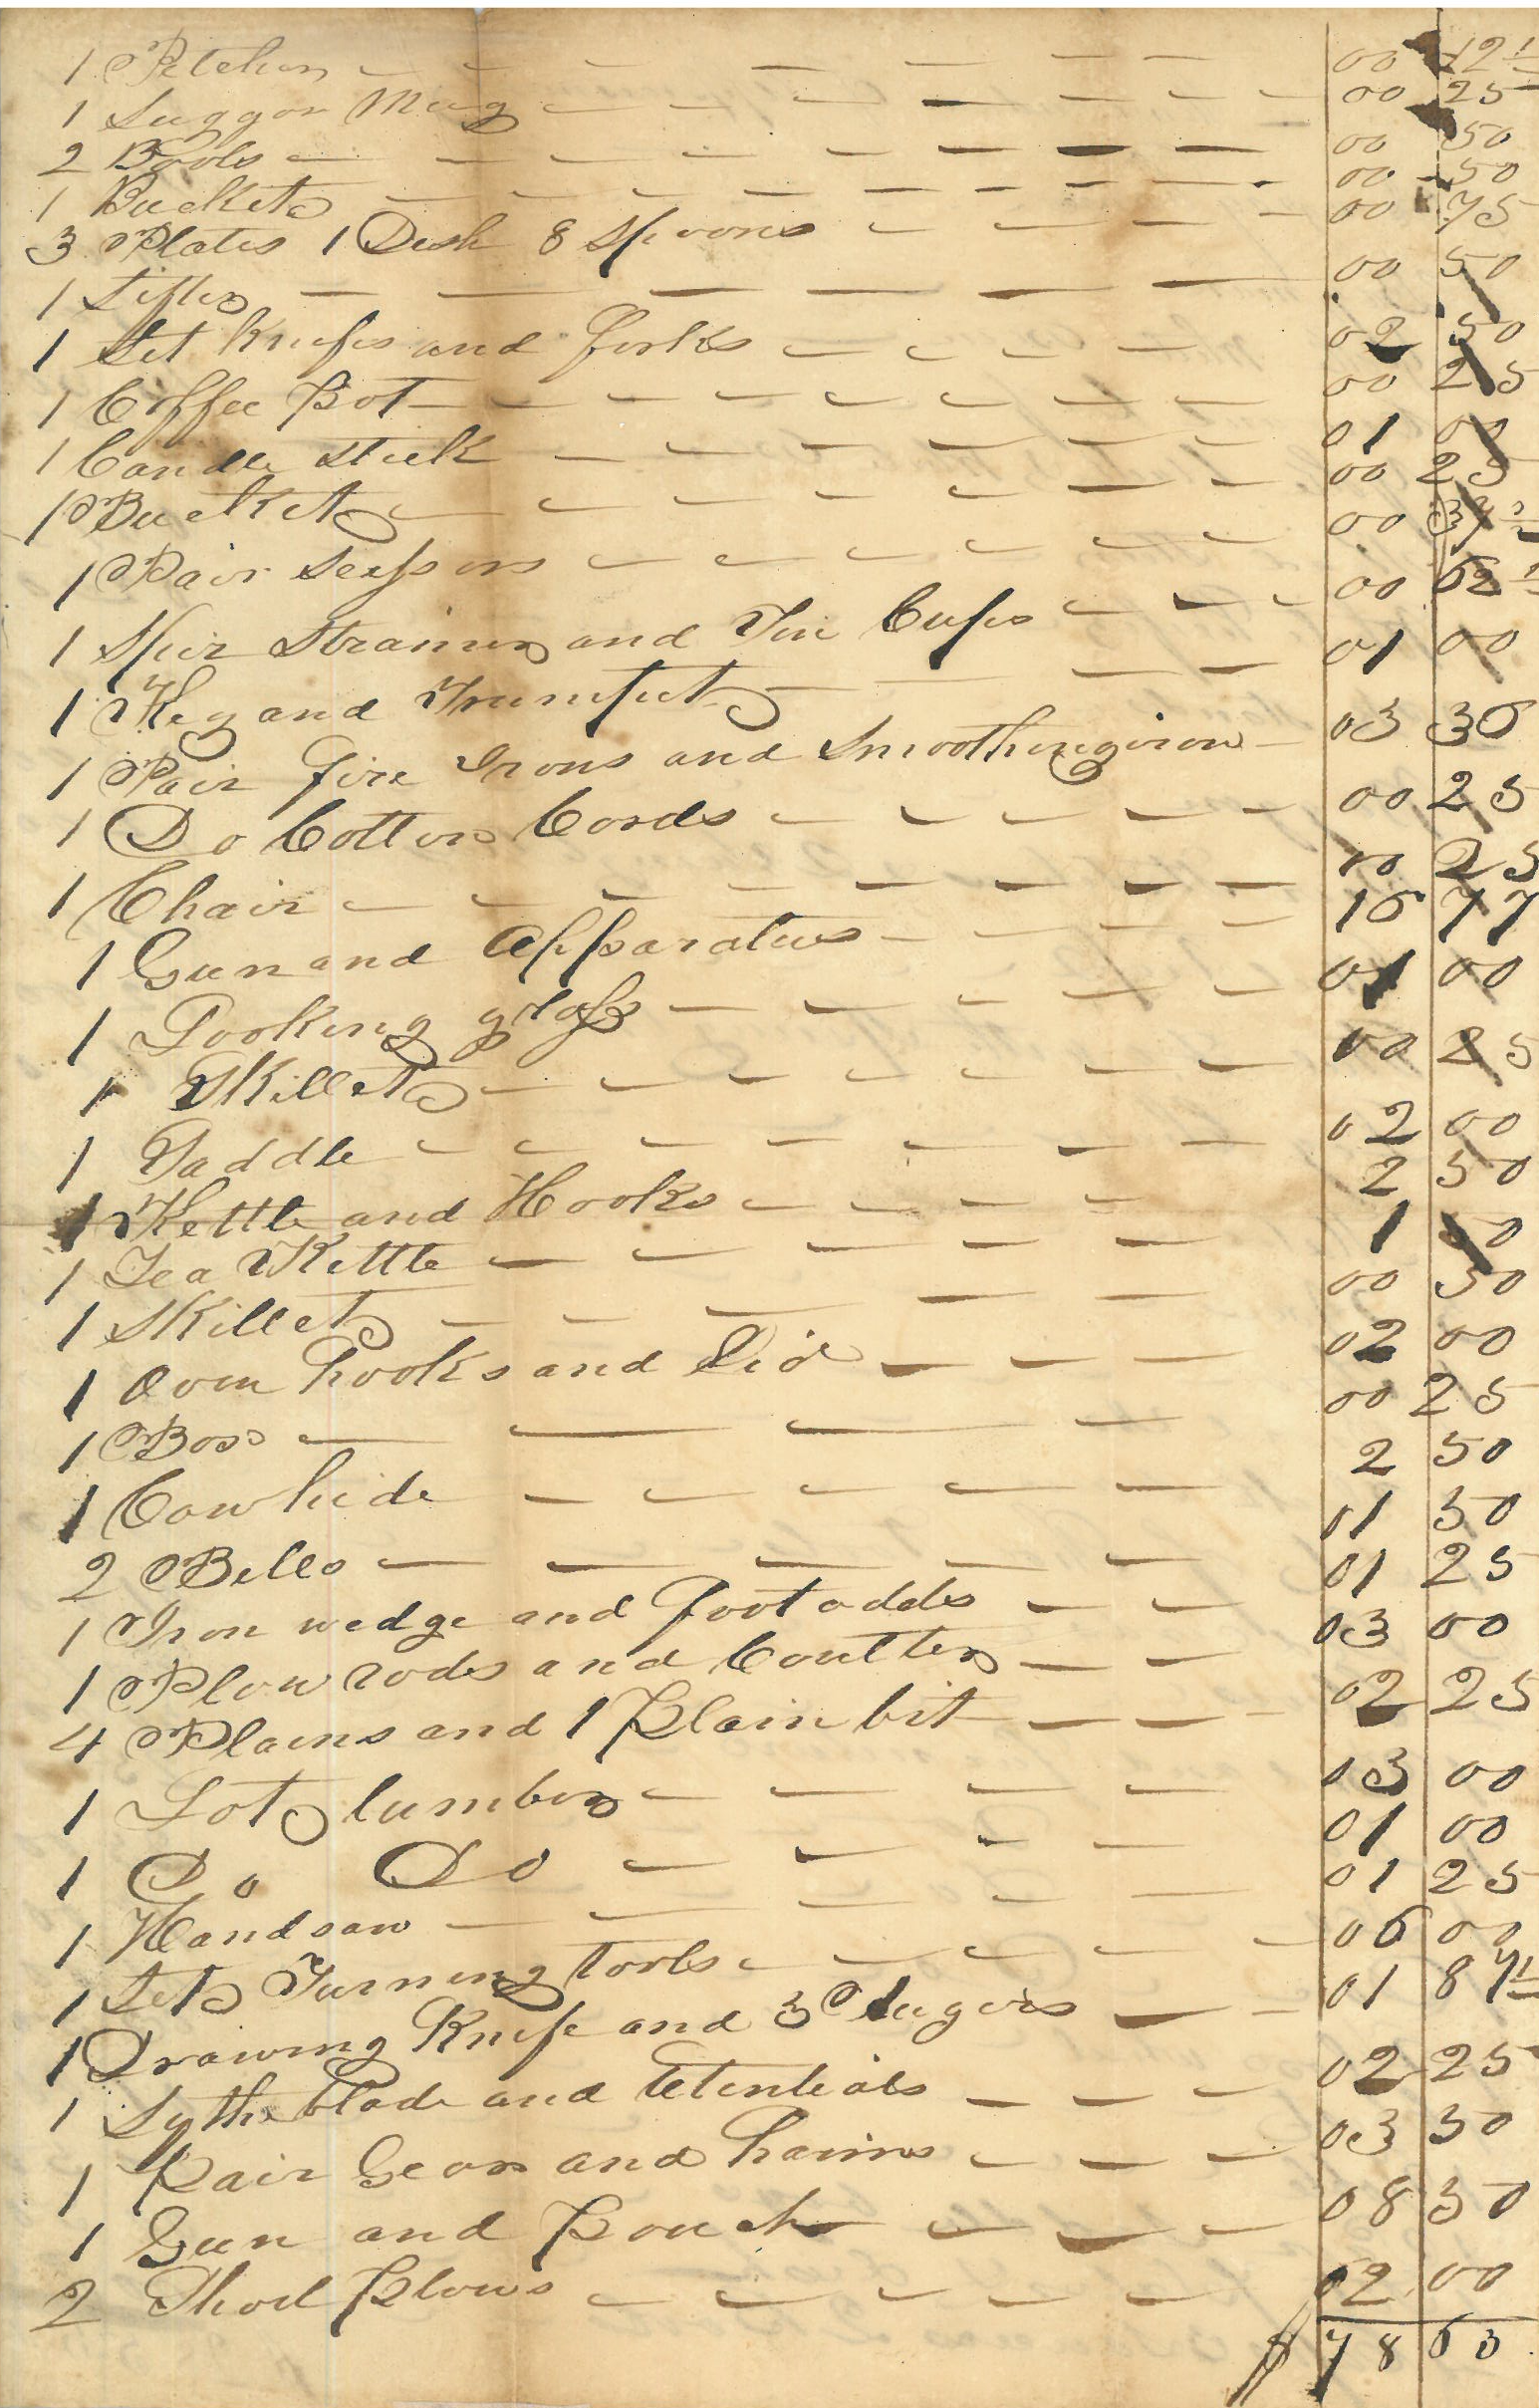 1 Pitcher 00 12 1/2
1 Suggar Mug 00 25
2 Bools 00 50
1 Bucket 00 50
3 Plates 1 Dish 8 Spoons 00 75
1 Sifter 00 50
1 Set Knifes and forks 02 50
1 Coffee Pot 00 25
1 Candle Stick 01 00
1 Bucket 00 25
1 Pair Seissors 00 37 1/2
1 Strainer and Tin Cups 00 62 1/2
1 Keg and Trumpet 01 00
1 Pair fire Irons and Smoothingiron 03 36
1 Do Cotton Cords 00 25
1 Chair 00 25
1 Gun and Apparatus 16 77
1 Looking glass 01 00
1 Skillet 00 25
1 Saddle 02 00
1 Kettle and Hooks 2 50
1 Tea Kettle 1 50
1 Skillet 00 50
1 Oven hooks and Lid 02 00
1 Box 00 25
1 Cowhide 2 50
2 Bells 01 50
1 Iron wedge and foot adds 01 25
1 Plow rods and Coulter 03 00
4 Plains and 1 Plain bit 02 25
1 Lot lumber 03 00
1 Do Do 01 00
1 Handsaw 01 25
1 Set Turning tools 06 00
1 Drawing Knife and 3 Augers 01 87 1/2
1 Sythe blade and 02 25
1 Pair Gears and hains 03 50
1 Gun and Pouch 08 50
2 Shovl Plows 02 00
$ 78 63